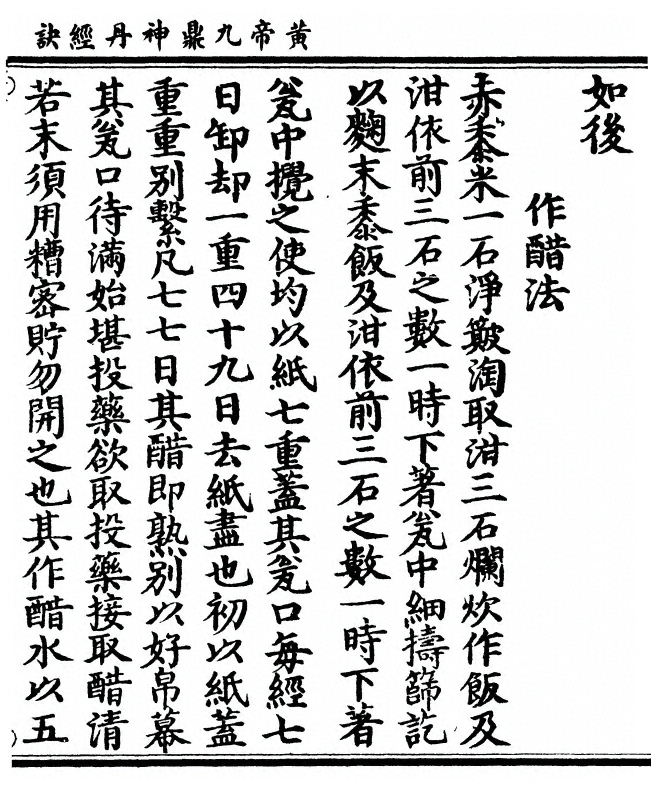 黃帝九鼎神丹經訣
如後
作醋法
赤黍米一石淨簸淘取泔三石爛炊作飯及
泔依前三石之數一時下著瓮中細擣篩訖
以麴末黍飯及泔依前三石之數一時下著
瓮中攪之使均以紙七重蓋其瓮口每經七
日卸却一重四十九日去紙盡也初以紙蓋
重重別繫凡七七日其醋即熟別以好帛幕
其瓮口待滿始堪投藥欲取投藥接取醋清
若末須用糟密貯勿開之也其作醋水以五